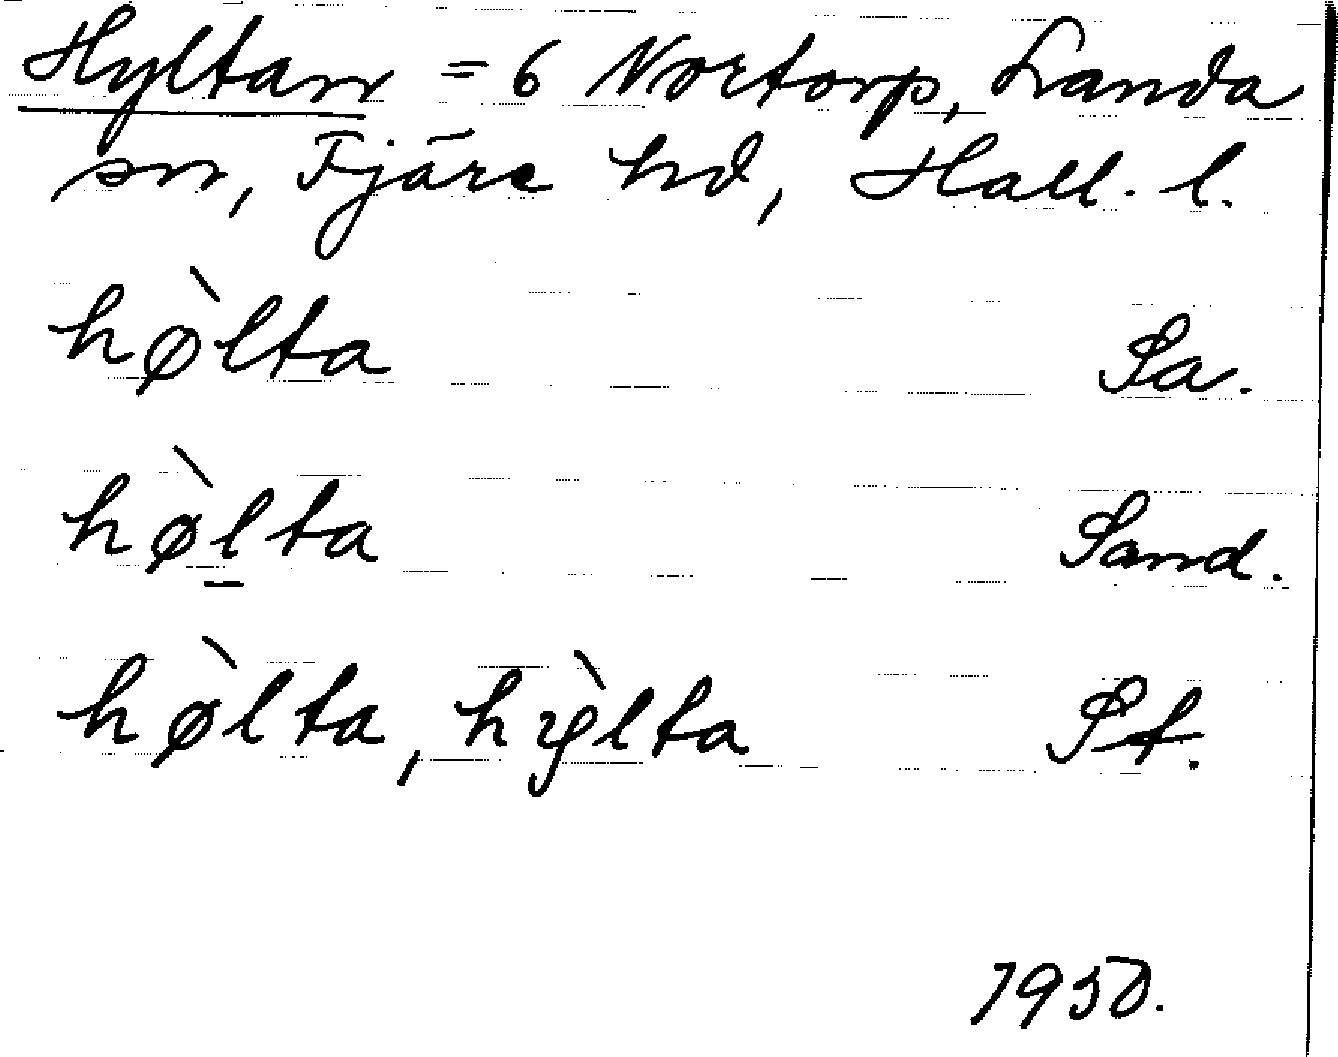 Hyltan = 6 Nortorp, Landa
sn, Fjäre hd, Hall. l.
hø̀lta Sa.
hø̀l̲ta Sand.
hø̀lta, hỳlta St.
1950.